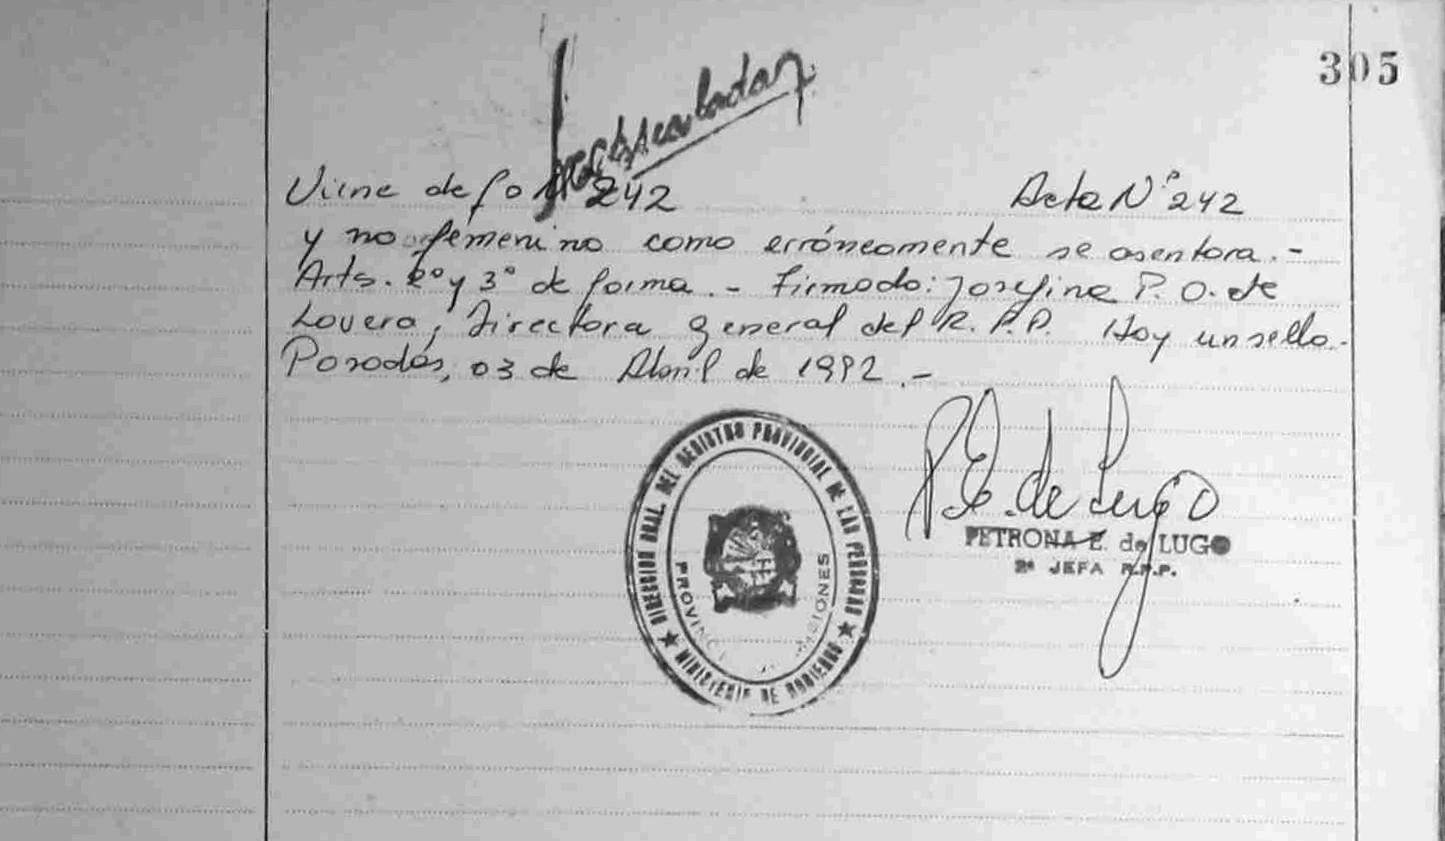 305
Inmaculada
Viene de fo 242 Acta Nº 242
y no femenino como erróneamente se asentara.-
Arts. 2º y 3º de forma.- Firmado: Josefina P. O. de
Lovera, Directora general del R. P. P. Hay un sello.-
Posadas, 03 de Abril de 1992.-
P.E. de Lugo
PETRONA E. de LUGO
2ª JEFA R.P.P.
DIRECCION GRAL. DEL REGISTRO PROVINCIAL DE LAS PERSONAS
PROVINCIA MISIONES
★ MINISTERIO DE GOBIERNO ★